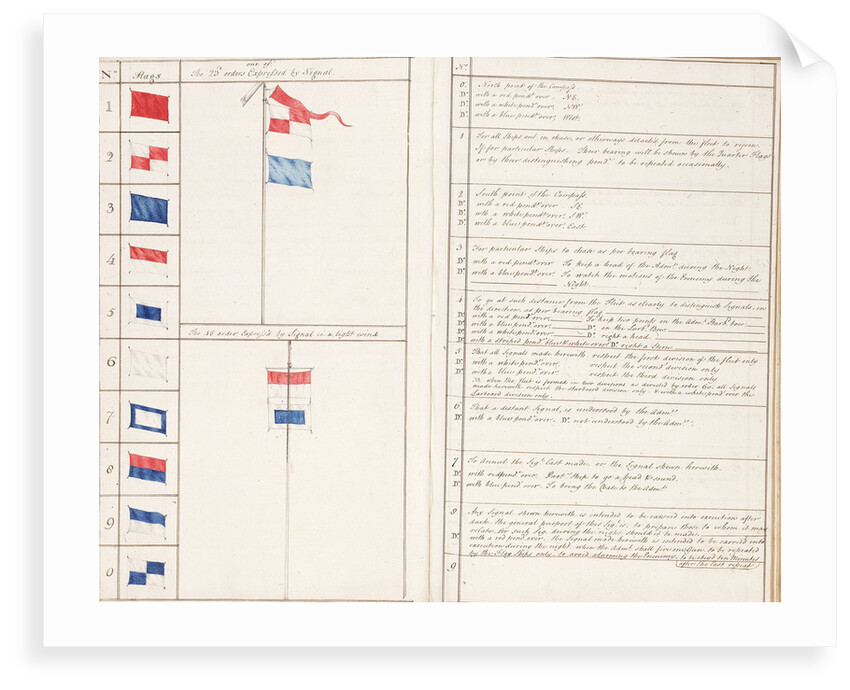 Nº Flags.
out of
The 23d orders Expressed by Signal.
1
2
3
4
5
6
7
8
9
0
The 45 order Express'd by Signal in a light wind
Nº
0. North point of the Compass
Dº with a red pendt over. NE.
Dº with a white pendt over. NW.
Dº with a blue pendt over. West.
1 For all Ships out in chase, or otherways detach'd from the fleet to rejoin
If for particular Ships. Their bearing will be shewn by the Quarter Flags
or by their distinguishing pendts to be repeated occasionally.
2 South point of the Compass.
Dº with a red pendt over SE.
Dº with a white pendt over, SW.
Dº with a blue pendt over, East
3 For particular Ships to chase as per bearing flag
Dº with a red pendt over To keep a head of the Adml during the Night.
Dº with a blue pendt over. To watch the motions of the Enemy during the
Night.
4 To go at such distance from the Fleet as clearly to distinguish Signals, in
the direction as per bearing flag
Dº with a red pendt over, To keep two points on the Admls Starbd bow
Dº with a blue pendt over, Dº on the Larbd Bow
Dº with a white pendt over Dº right a head
Dº with a striped pendt blue & white over Dº right a Stern
5 That all Signals made herewith respect the first division of the fleet only
Dº with a white pendt over. respect the second division only
Dº with a blue pendt over respect the third division only
when the fleet is formed in two divisions as divided by order all Signals
made herewith respect the starboard division only. & with a white pendt over the
Larboard division only.
6 That a distant Signal, is understood by the Adml
Dº with a blue pendt over. Dº not understood by the Adml
7 To Annul the Sigl last made, or the Signal shewn herewith.
Dº with red pendt over. Ship to go a head & sound.
Dº with blue pendt over. To bring the Chase to the Adml
8 Any Signal shewn herewith is intended to be carried into execution after
dark. the general purport of this Sigl is, to prepare those to whom it may
relate, for such Sigl during the night, should it be made.
Dº with a red pendt over. the Signal made herewith is intended to be carried into
execution during the night, when the Adml shall to be repeated
by the Flag Ships only, to avoid alarming the Enemy, to be obey'd ten Minutes
after the last repeat
9